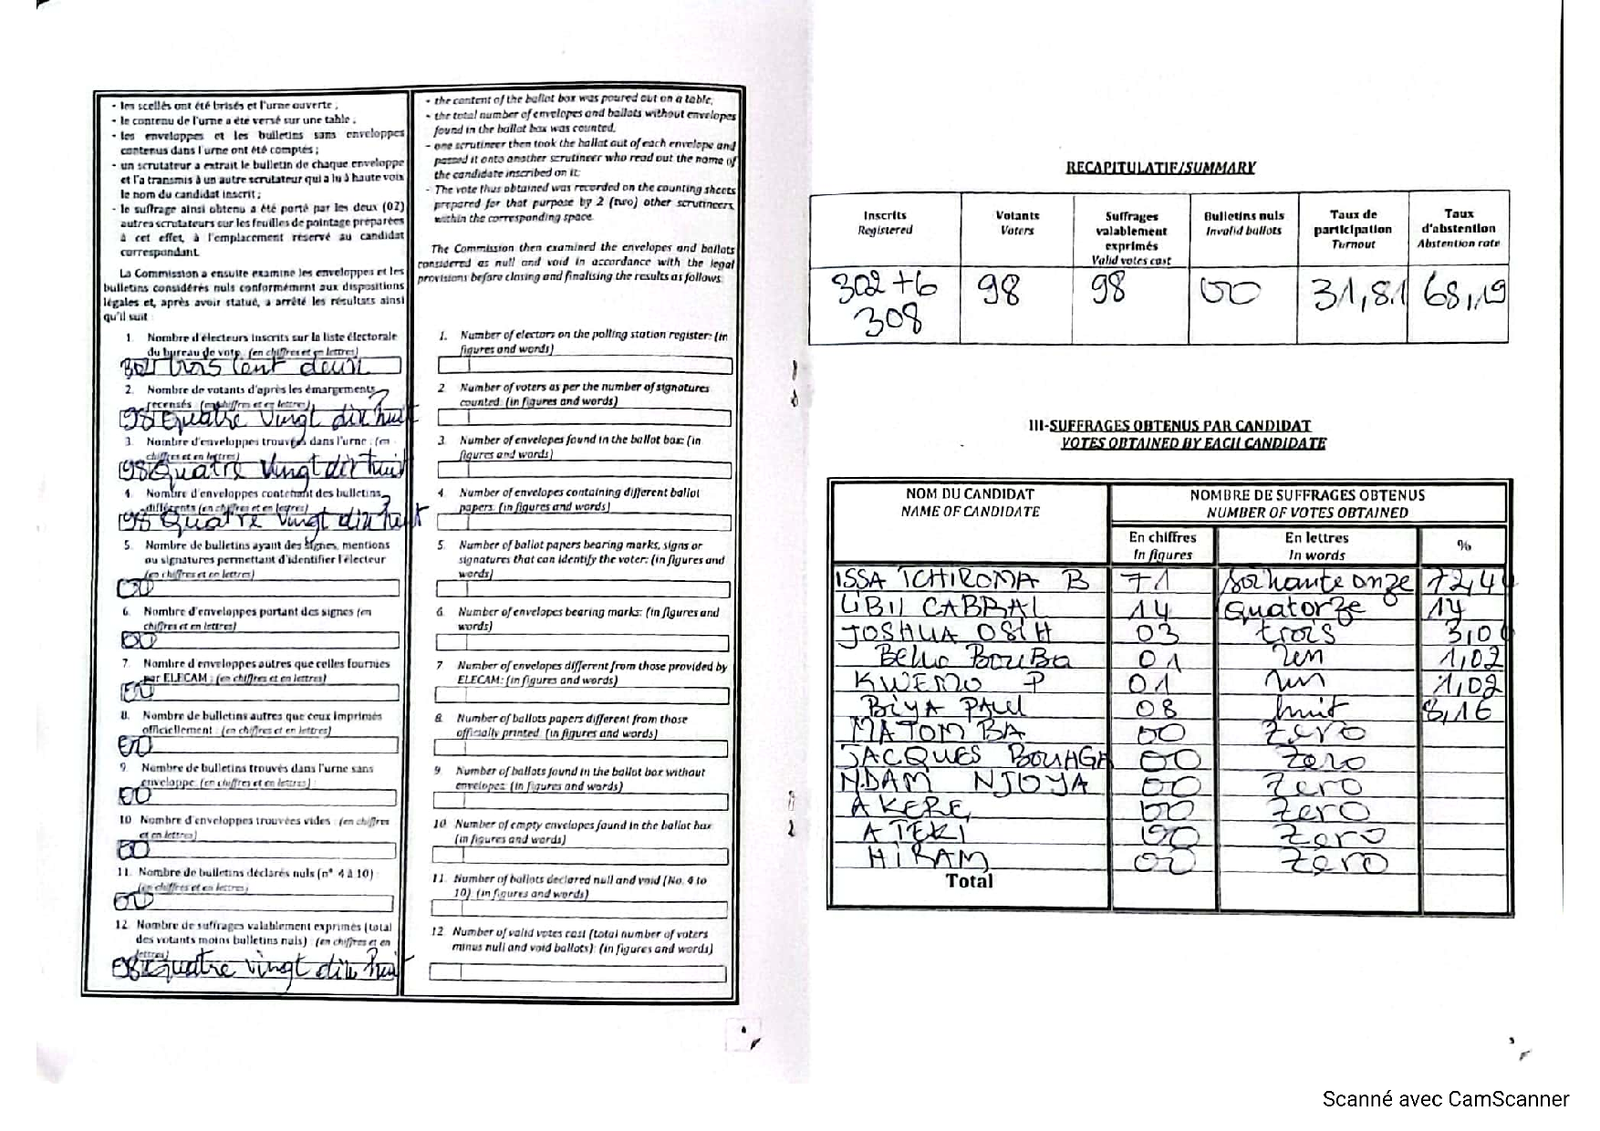 - les scellés ont été brisés et l'urne ouverte ;
- le contenu de l'urne a été versé sur une table ;
- les enveloppes et les bulletins sans enveloppes
contenus dans l'urne ont été comptés ;
- un scrutateur a extrait le bulletin de chaque enveloppe
et l'a transmis à un autre scrutateur qui a lu à haute voix
le nom du candidat inscrit ;
- le suffrage ainsi obtenu a été porté par les deux (02)
autres scrutateurs sur les feuilles de pointage préparées
à cet effet, à l'emplacement réservé au candidat
correspondant.
La Commission a ensuite examine les enveloppes et les
bulletins considérés nuls conformément aux dispositions
légales et, après avoir statué, a arrêté les résultats ainsi
qu'il suit
1. Nombre d'électeurs inscrits sur la liste électorale
du bureau de vote (en chiffres et en lettres)
302 trois cent deux
2. Nombre de votants d'après les émargements
recensés (en chiffres et en lettres)
98 Quatre vingt dix huit
3. Nombre d'enveloppes trouvées dans l'urne : (en
chiffres et en lettres)
98 Quatre vingt dix huit
4. Nombre d'enveloppes contenant des bulletins
différents (en chiffres et en lettres)
98 Quatre vingt dix huit
5. Nombre de bulletins ayant des signes, mentions
ou signatures permettant d'identifier l'électeur
(en chiffres et en lettres)
00
6. Nombre d'enveloppes portant des signes (en
chiffres et en lettres)
00
7. Nombre d'enveloppes autres que celles fournies
par ELECAM : (en chiffres et en lettres)
00
8. Nombre de bulletins autres que ceux imprimés
officiellement : (en chiffres et en lettres)
00
9. Nombre de bulletins trouvés dans l'urne sans
enveloppe (en chiffres et en lettres)
00
10 Nombre d'enveloppes trouvées vides : (en chiffres
et en lettres)
00
11. Nombre de bulletins déclarés nuls (n° 4 à 10)
(en chiffres et en lettres)
00
12. Nombre de suffrages valablement exprimés (total
des votants moins bulletins nuls) (en chiffres et en
lettres)
98 Quatre vingt dix huit
- the content of the ballot box was poured out on a table;
- the total number of envelopes and ballots without envelopes
found in the ballot box was counted,
- one scrutineer then took the ballot out of each envelope and
passed it onto another scrutineer who read out the name of
the candidate inscribed on it;
- The vote thus obtained was recorded on the counting sheets
prepared for that purpose by 2 (two) other scrutineers
within the corresponding space
The Commission then examined the envelopes and ballots
considered as null and void in accordance with the legal
provisions before closing and finalising the results as follows
1. Number of electors on the polling station register: (in
figures and words)
2 Number of voters as per the number of signatures
counted: (in figures and words)
3. Number of envelopes found in the ballot box: (in
figures and words)
4. Number of envelopes containing different ballot
papers. (in figures and words)
5. Number of ballot papers bearing marks, signs or
signatures that can identify the voter: (in figures and
words)
6. Number of envelopes bearing marks: (in figures and
words)
7 Number of envelopes different from those provided by
ELECAM: (in figures and words)
8. Number of ballots papers different from those
officially printed (in figures and words)
9 Number of ballots found in the ballot box without
envelopes (in figures and words)
10 Number of empty envelopes found in the ballot box
(in figures and words)
11. Number of ballots declared null and void (No. 4 to
10) (in figures and words)
12 Number of valid votes cast (total number of voters
minus null and void ballots): (in figures and words)
RECAPITULATIF/SUMMARY
Inscrits
Registered
Votants
Voters
Suffrages
valablement
exprimés
Valid votes cast
Bulletins nuls
Invalid ballots
Taux de
participation
Turnout
Taux
d'abstention
Abstention rate
302+6
308
98
98
00
31,81
68,19
III-SUFFRAGES OBTENUS PAR CANDIDAT
VOTES OBTAINED BY EACH CANDIDATE
NOM DU CANDIDAT
NAME OF CANDIDATE
NOMBRE DE SUFFRAGES OBTENUS
NUMBER OF VOTES OBTAINED
En chiffres
In figures
En lettres
In words
%
ISSA TCHIROMA B 71 Soixante onze 72,44
LIBII CABRAL 14 Quatorze 14
JOSHUA OSIH 03 trois 3,0
Bello BOUBA 01 un 1,02
KWEMO P 01 un 1,02
BIYA PAUL 08 huit 8,16
MATOMBA 00 Zero
JACQUES BOUHGA 00 Zero
NDAM NJOYA 00 Zero
AKERE 00 Zero
ATEKI 00 Zero
HIRAM 00 Zero
Total
Scanné avec CamScanner